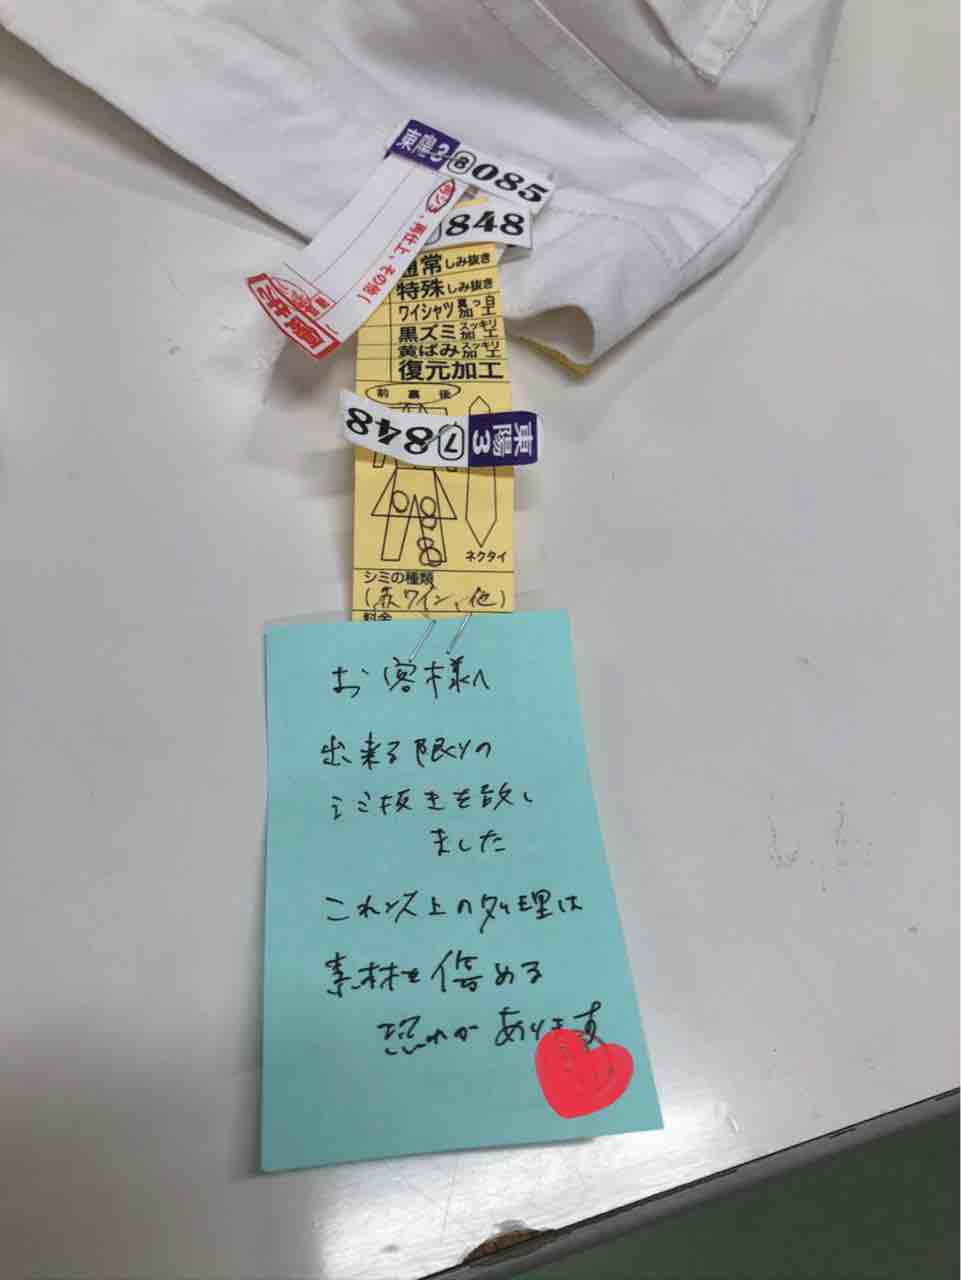 東陽3 8 085
848
ボタン、再仕上、その他(
通常しみ抜き
特殊しみ抜き
ワイシャツ真っ白加工
黒ズミスッキリ加工
黄ばみスッキリ加工
復元加工
前 裏 後
東陽3 7 848
ネクタイ
シミの種類
(赤ワイン、他)
料金
お客様へ
出来る限りの
シミ抜きを致し
ました
これ以上の処理は
素材を傷める
恐れがあります